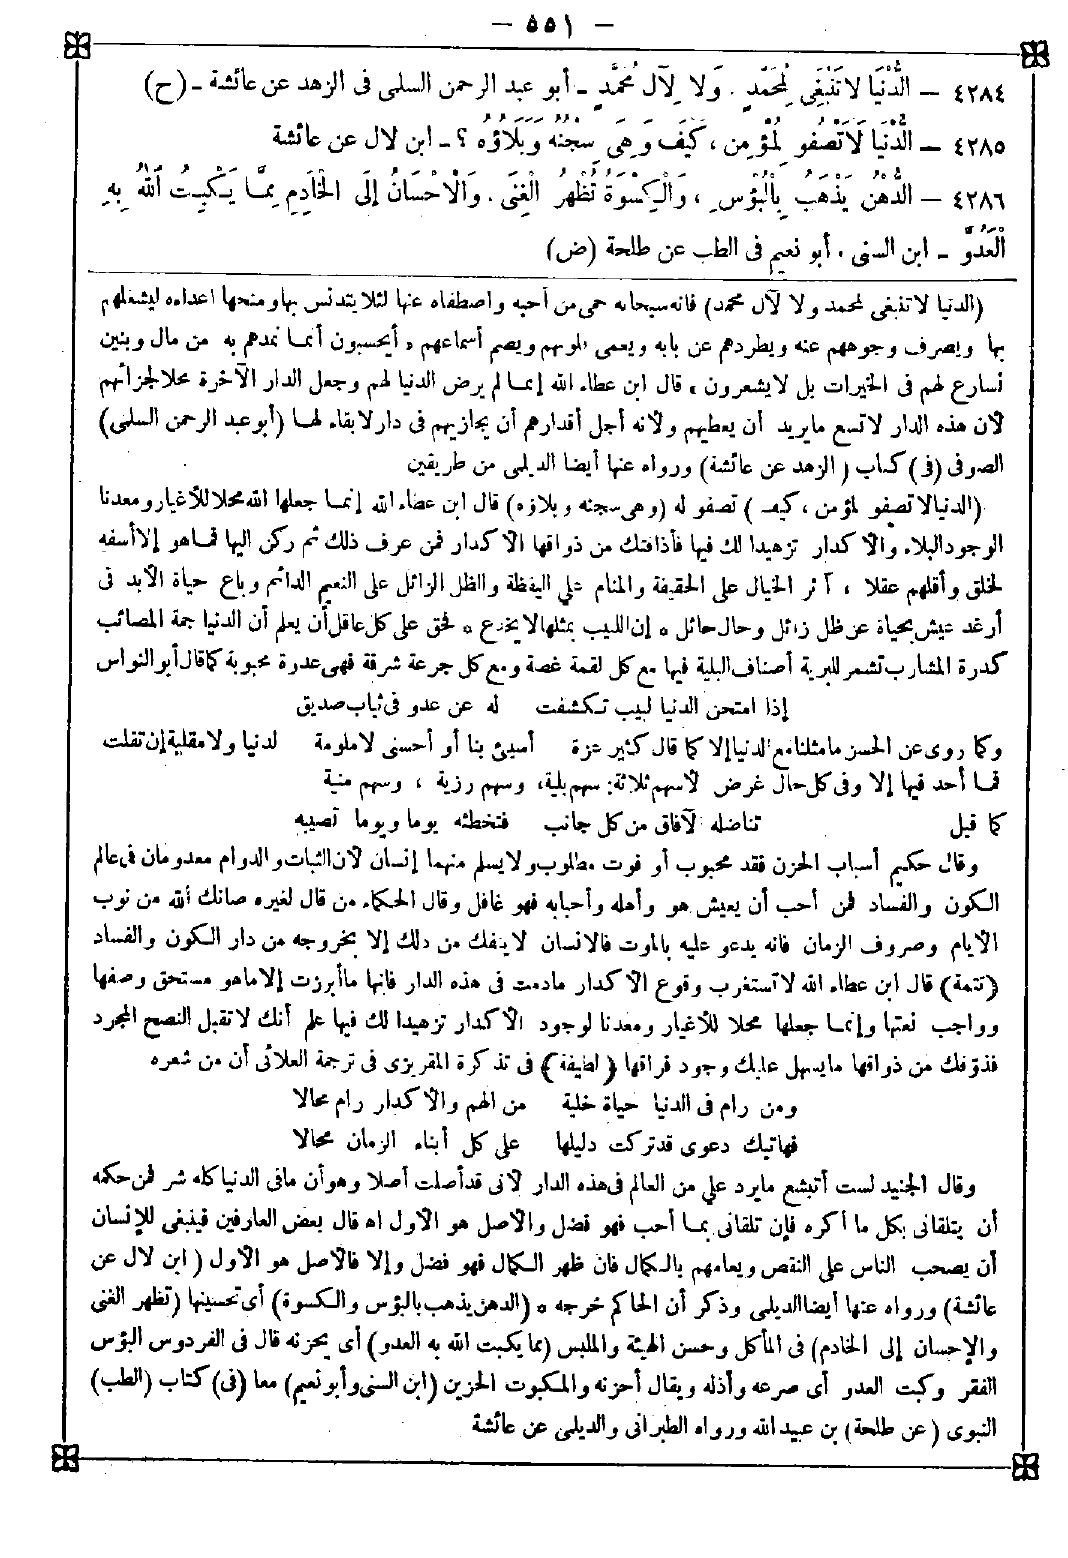 — ٥٥١ —
٤٢٨٤ — الدُّنْيَا لَا تَنْبَغِى لِمُحَمَّدٍ . وَلَا لِآلِ مُحَمَّدٍ - أبو عبد الرحمن السلمى فى الزهد عن عائشة - (ح)
٤٢٨٥ — الدُّنْيَا لَا تَصْفُو لِمُؤْمِنٍ ، كَيْفَ وَهِىَ سِجْنُهُ وَبَلَاؤُهُ ؟ - ابن لال عن عائشة
٤٢٨٦ — الدُّهْنُ يَذْهَبُ بِالْبُؤْسِ ، وَالْكِسْوَةُ تُظْهِرُ الْغِنَى . وَالْإِحْسَانُ إِلَى الْخَادِمِ مِمَّا يَكْبِتُ اللهُ بِهِ
الْعَدُوَّ - ابن السنى . أبو نعيم فى الطب عن طلحة (ض)
(الدنيا لا تنبغى لمحمد ولا لآل محمد) فانه سبحانه حمى من أحبه واصطفاه عنها لئلا يتدنس بها ومنحها اعداءه ليشغلهم
بها ويصرف وجوههم عنه ويطردهم عن بابه ويعمى قلوبهم ويصم أسماعهم ، أيحسبون أنما نمدهم به من مال وبنين
نسارع لهم فى الخيرات بل لا يشعرون ، قال ابن عطاء الله إنما لم يرض الدنيا لهم وجعل الدار الآخرة محلا لجزائهم
لأن هذه الدار لا تسع ما يريد أن يعطيهم ولأنه أجل أقدارهم أن يجازيهم فى دار لا بقاء لها (أبو عبد الرحمن السلمى)
الصوفى (فى) كتاب (الزهد عن عائشة) ورواه عنها أيضا الديلمى من طريقين
(الدنيا لا تصفو لمؤمن ، كيف) تصفو له (وهى سجنه وبلاؤه) قال ابن عطاء الله إنما جعلها الله محلا للأغيار ومعدنا
لوجود البلاء والأكدار تزهيدا لك فيها فأذاقتك من ذواقها الأكدار فمن عرف ذلك ثم ركن اليها فما هو إلا أسفه
الخلق وأقلهم عقلا ، آثر الخيال على الحقيقة والمنام على اليقظة والظل الزائل على النعيم الدائم وباع حياة الأبد فى
أرغد عيش بحياة عن ظل زائل وحال حائل ه إن اللبيب بمثلها لا يخدع ه فحق على كل عاقل أن يعلم أن الدنيا جمة المصائب
كدرة المشارب تشمر للبرية أصناف البلية فيها مع كل لقمة غصة ومع كل جرعة شرقة فهى عدوة محبوبة كما قال أبو النواس
إذا امتحن الدنيا لبيب تكشفت له عن عدو فى ثياب صديق
وكما روى عن الحسن ما مثلنا مع الدنيا إلا كما قال كثير عزة أسيئى بنا أو أحسنى لا ملومة لدنيا ولا مقلية إن تقلت
فما أحد فيها إلا وفى كل حال غرض لأسهم ثلاثة: سهم بلية، وسهم رزية ، وسهم منية
كما قيل تناضله الآفاق من كل جانب فتخطئه يوما ويوما تصيبه
وقال حكيم أسباب الحزن فقد محبوب أو فوت مطلوب ولا يسلم منهما إنسان لأن الثبات والدوام معدومان فى عالم
الكون والفساد فمن أحب أن يعيش هو وأهله وأحبابه فهو غافل وقال الحكماء من قال لغيره صانك الله من نوب
الأيام وصروف الزمان فانه يدعو عليه بالموت فالانسان لا ينفك من ذلك إلا بخروجه من دار الكون والفساد
(تتمة) قال ابن عطاء الله لا تستغرب وقوع الأكدار مادمت فى هذه الدار فانها ما أبرزت إلا ما هو مستحق وصفها
وواجب نعتها وإنما جعلها محلا للأغيار ومعدنا لوجود الأكدار تزهيدا لك فيها علم أنك لا تقبل النصح المجرد
فذوقك من ذواقها ما يسهل عليك وجود فراقها (لطيفة) فى تذكرة المقريزى فى ترجمة العلائى أن من شعره
ومن رام فى الدنيا حياة خلية من الهم والأكدار رام محالا
فهاتيك دعوى قد تركت دليلها على كل أبناء الزمان محالا
وقال الجنيد لست أتبشع ما يرد علي من العالم فى هذه الدار لأنى قد أصلت أصلا وهو أن ما فى الدنيا كله شر فمن حكمه
أن يتلقانى بكل ما أكره فإن تلقانى بما أحب فهو فضل والأصل هو الأول اه قال بعض العارفين فينبغى للإنسان
أن يصحب الناس على النقص ويعامهم بالكمال فان ظهر الكمال فهو فضل وإلا فالأصل هو الأول (ابن لال عن
عائشة) ورواه عنها أيضا الديلمى وذكر أن الحاكم خرجه ه (الدهن يذهب بالبؤس والكسوة) أى تحسينها (تظهر الغنى
والإحسان إلى الخادم) فى المأكل وحسن الهيئة والملبس (مما يكبت الله به العدو) أى يحزنه قال فى الفردوس البؤس
الفقر وكبت العدو أى صرعه وأذله ويقال أحزنه والمكبوت الحزين (ابن السنى وأبو نعيم) معا (فى) كتاب (الطب)
النبوى (عن طلحة) بن عبيد الله ورواه الطبرانى والديلمى عن عائشة